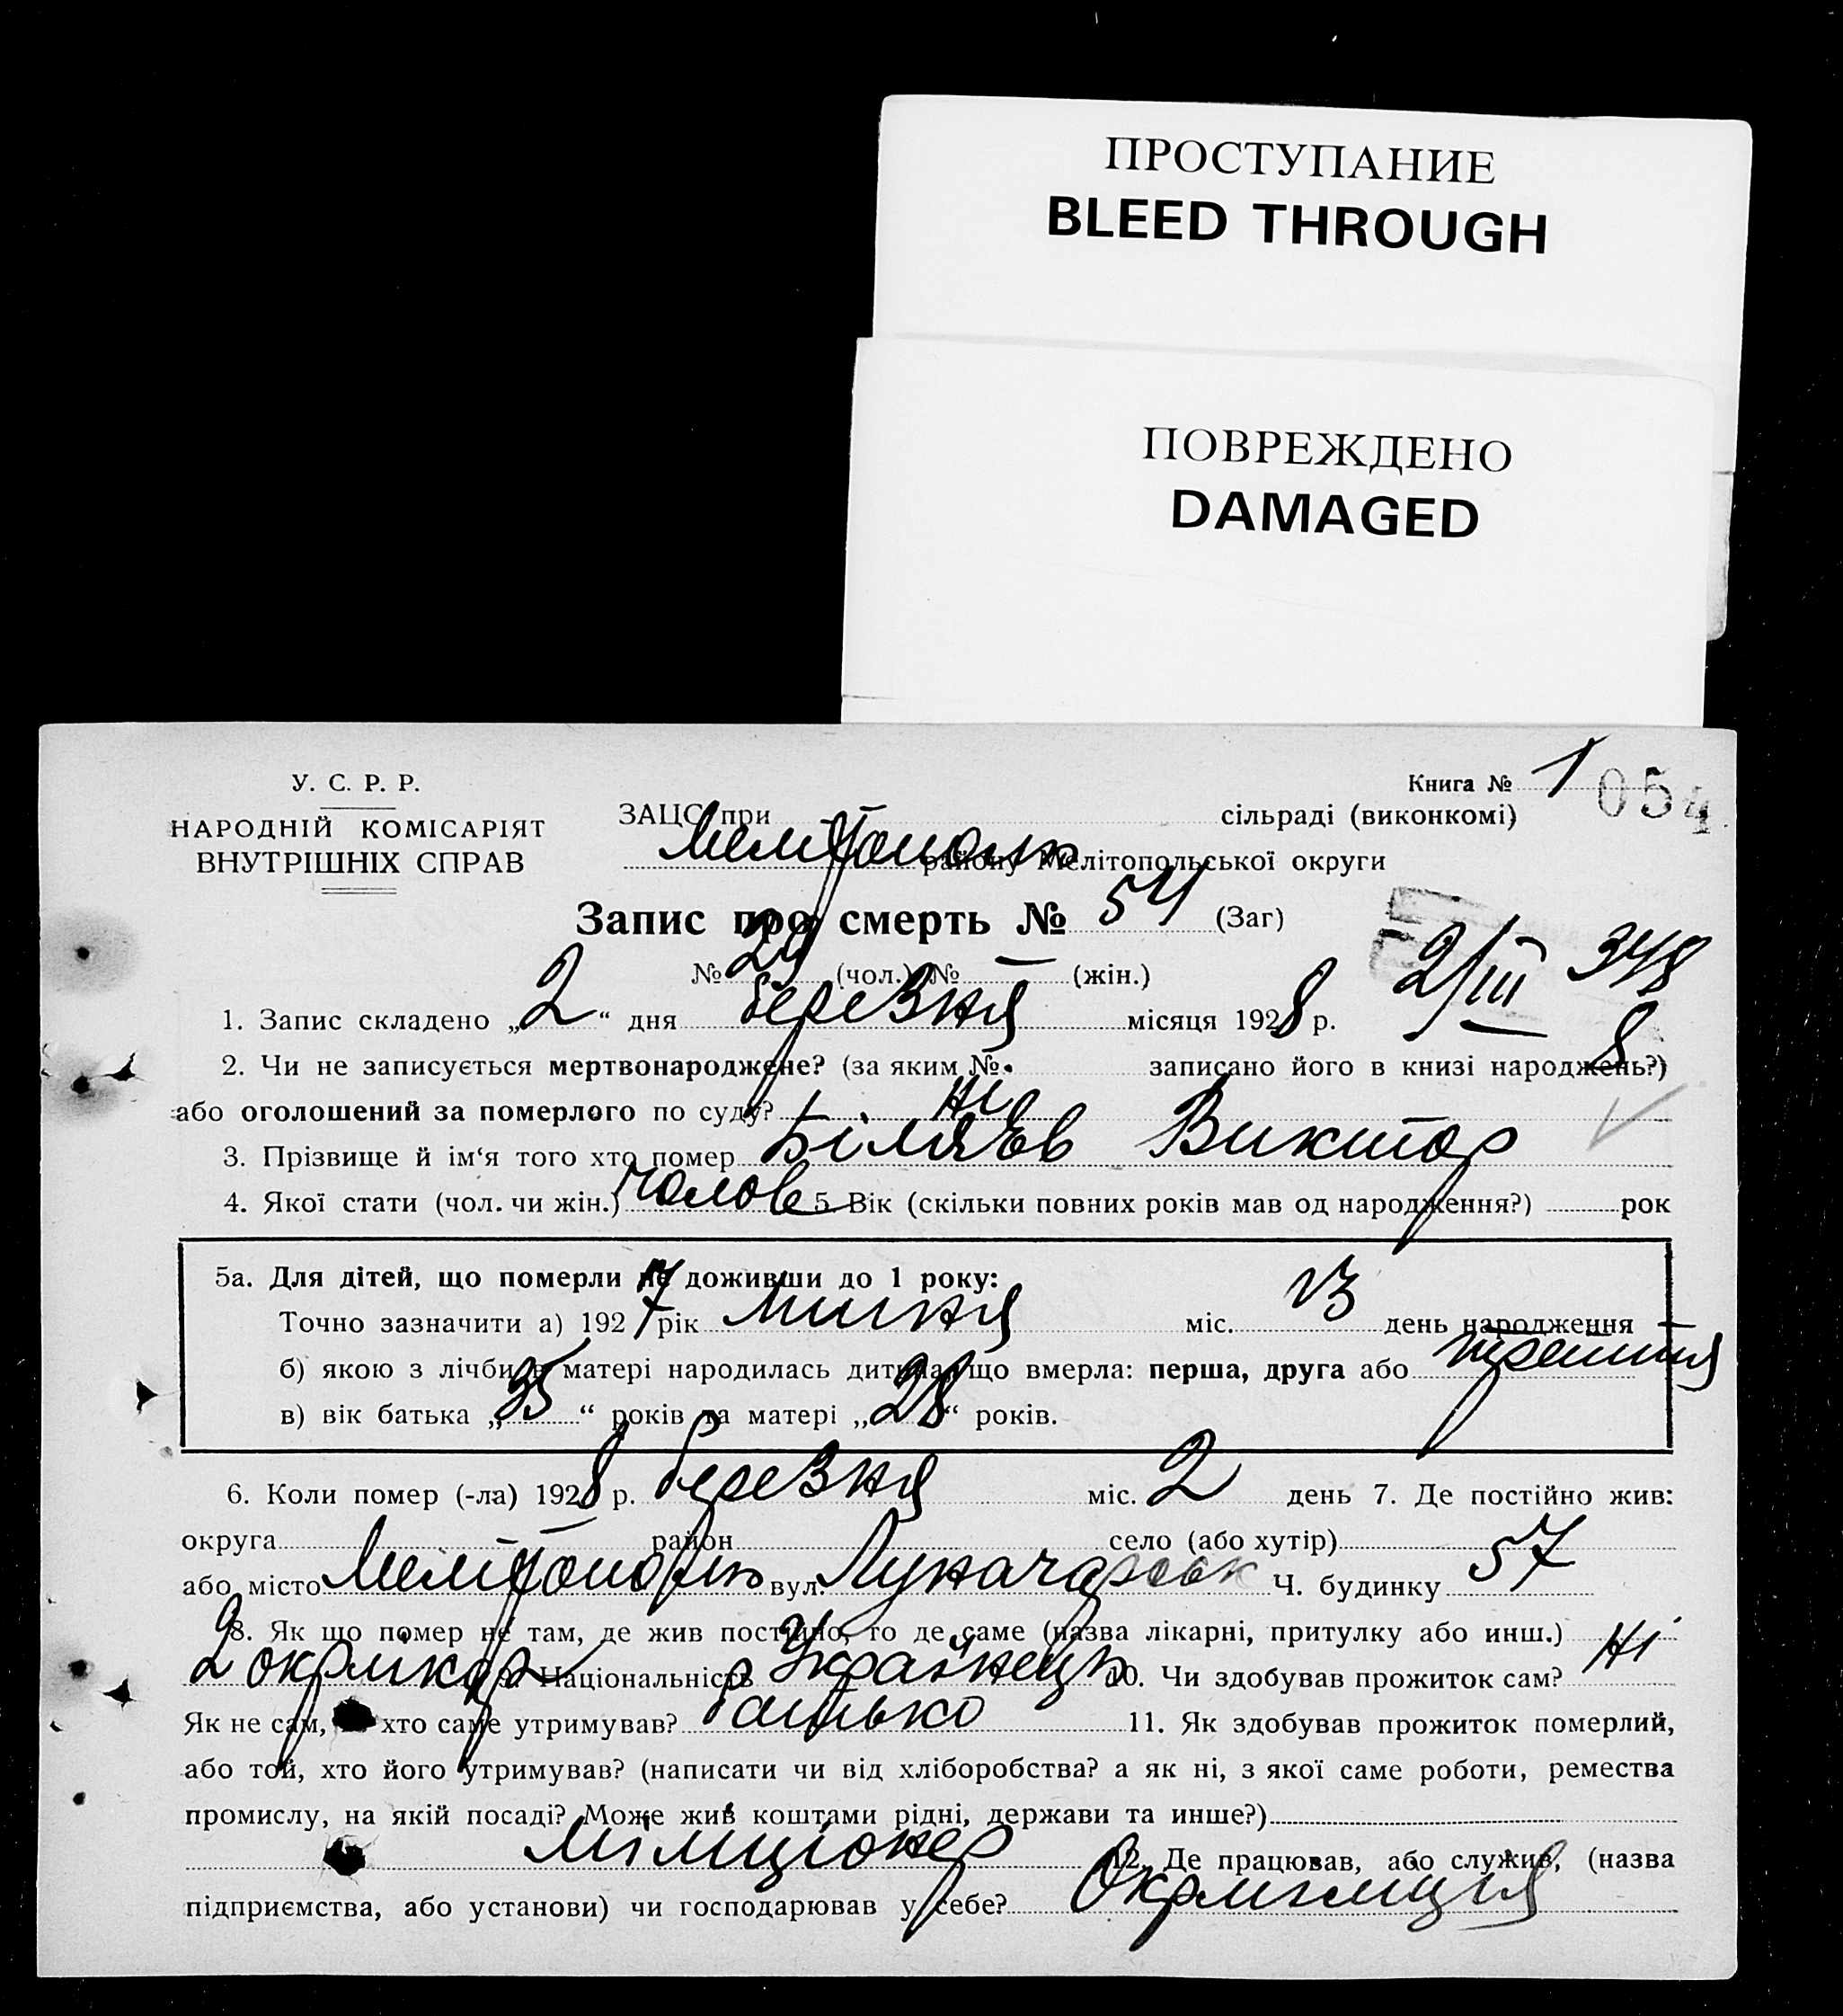 ПРОСТУПАНИЕ
BLEED THROUGH
ПОВРЕЖДЕНО
DAMAGED
У. С. Р. Р.
НАРОДНІЙ КОМІСАРІЯТ
ВНУТРІШНІХ СПРАВ
Книга № 1 054
ЗАЦС при сільраді (виконкомі)
району Мелітопольської округи
Запис про смерть № 54 (Заг)
№ 29 (чол.) № — (жін.)
2/III 348
8
1. Запис складено „2“ дня березня місяця 1928 р.
2. Чи не записується мертвонароджене? (за яким №. записано його в книзі народжень?)
або оголошений за померлого по суду? ні
3. Прізвище й ім‘я того хто помер Біляєв Виктор
4. Якої стати (чол. чи жін.) чолов 5. Вік (скільки повних років мав од народження?) рок
5а. Для дітей, що померли не доживши до 1 року:
Точно зазначити а) 1927 рік липня міс. день народження
б) якою з лічби в матері народилась дитина, що вмерла: перша, друга або треття
в) вік батька „35“ років та матері „28“ років.
6. Коли помер (-ла) 1928 р. березня міс. 2 день 7. Де постійно жив:
округа район село (або хутір)
або місто Мелітополь вул. Луначарськ Ч. будинку 57
8. Як що помер не там, де жив постійно, то де саме (назва лікарні, притулку або инш.)
2 окрлікар 9. Національність Українець 10. Чи здобував прожиток сам? Ні
Як не сам, хто саме утримував? батько 11. Як здобував прожиток померлий,
або той, хто його утримував? (написати чи від хліборобства? а як ні, з якої саме роботи, ремества
промислу, на якій посаді? Може жив коштами рідні, держави та инше?)
Міліціонер 12. Де працював, або служив, (назва
підприємства, або установи) чи господарював у себе? Окрміліція